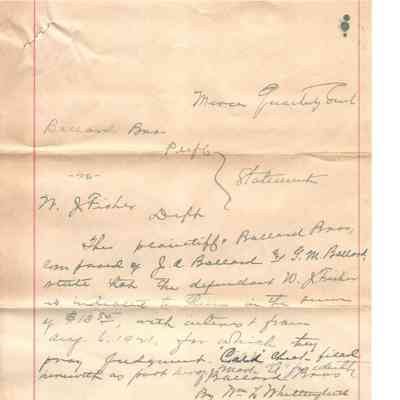 Mercer Quarterly Court
Ballard Bros.
Plffs
-vs- Statement
W. J. Fisher
Deft
The plaintiffs Ballard Bros,
composed of J. A. Ballard & G. M. Ballard,
state that the defendant W. J. Fisher
is indebted to them in the sum
of $18.50, with interest from
Aug. 6, 1921, for which they
pray Judgment. Cold Check filed
herewith as part hereof Mark "A" identity
Ballard Bros
By Wm